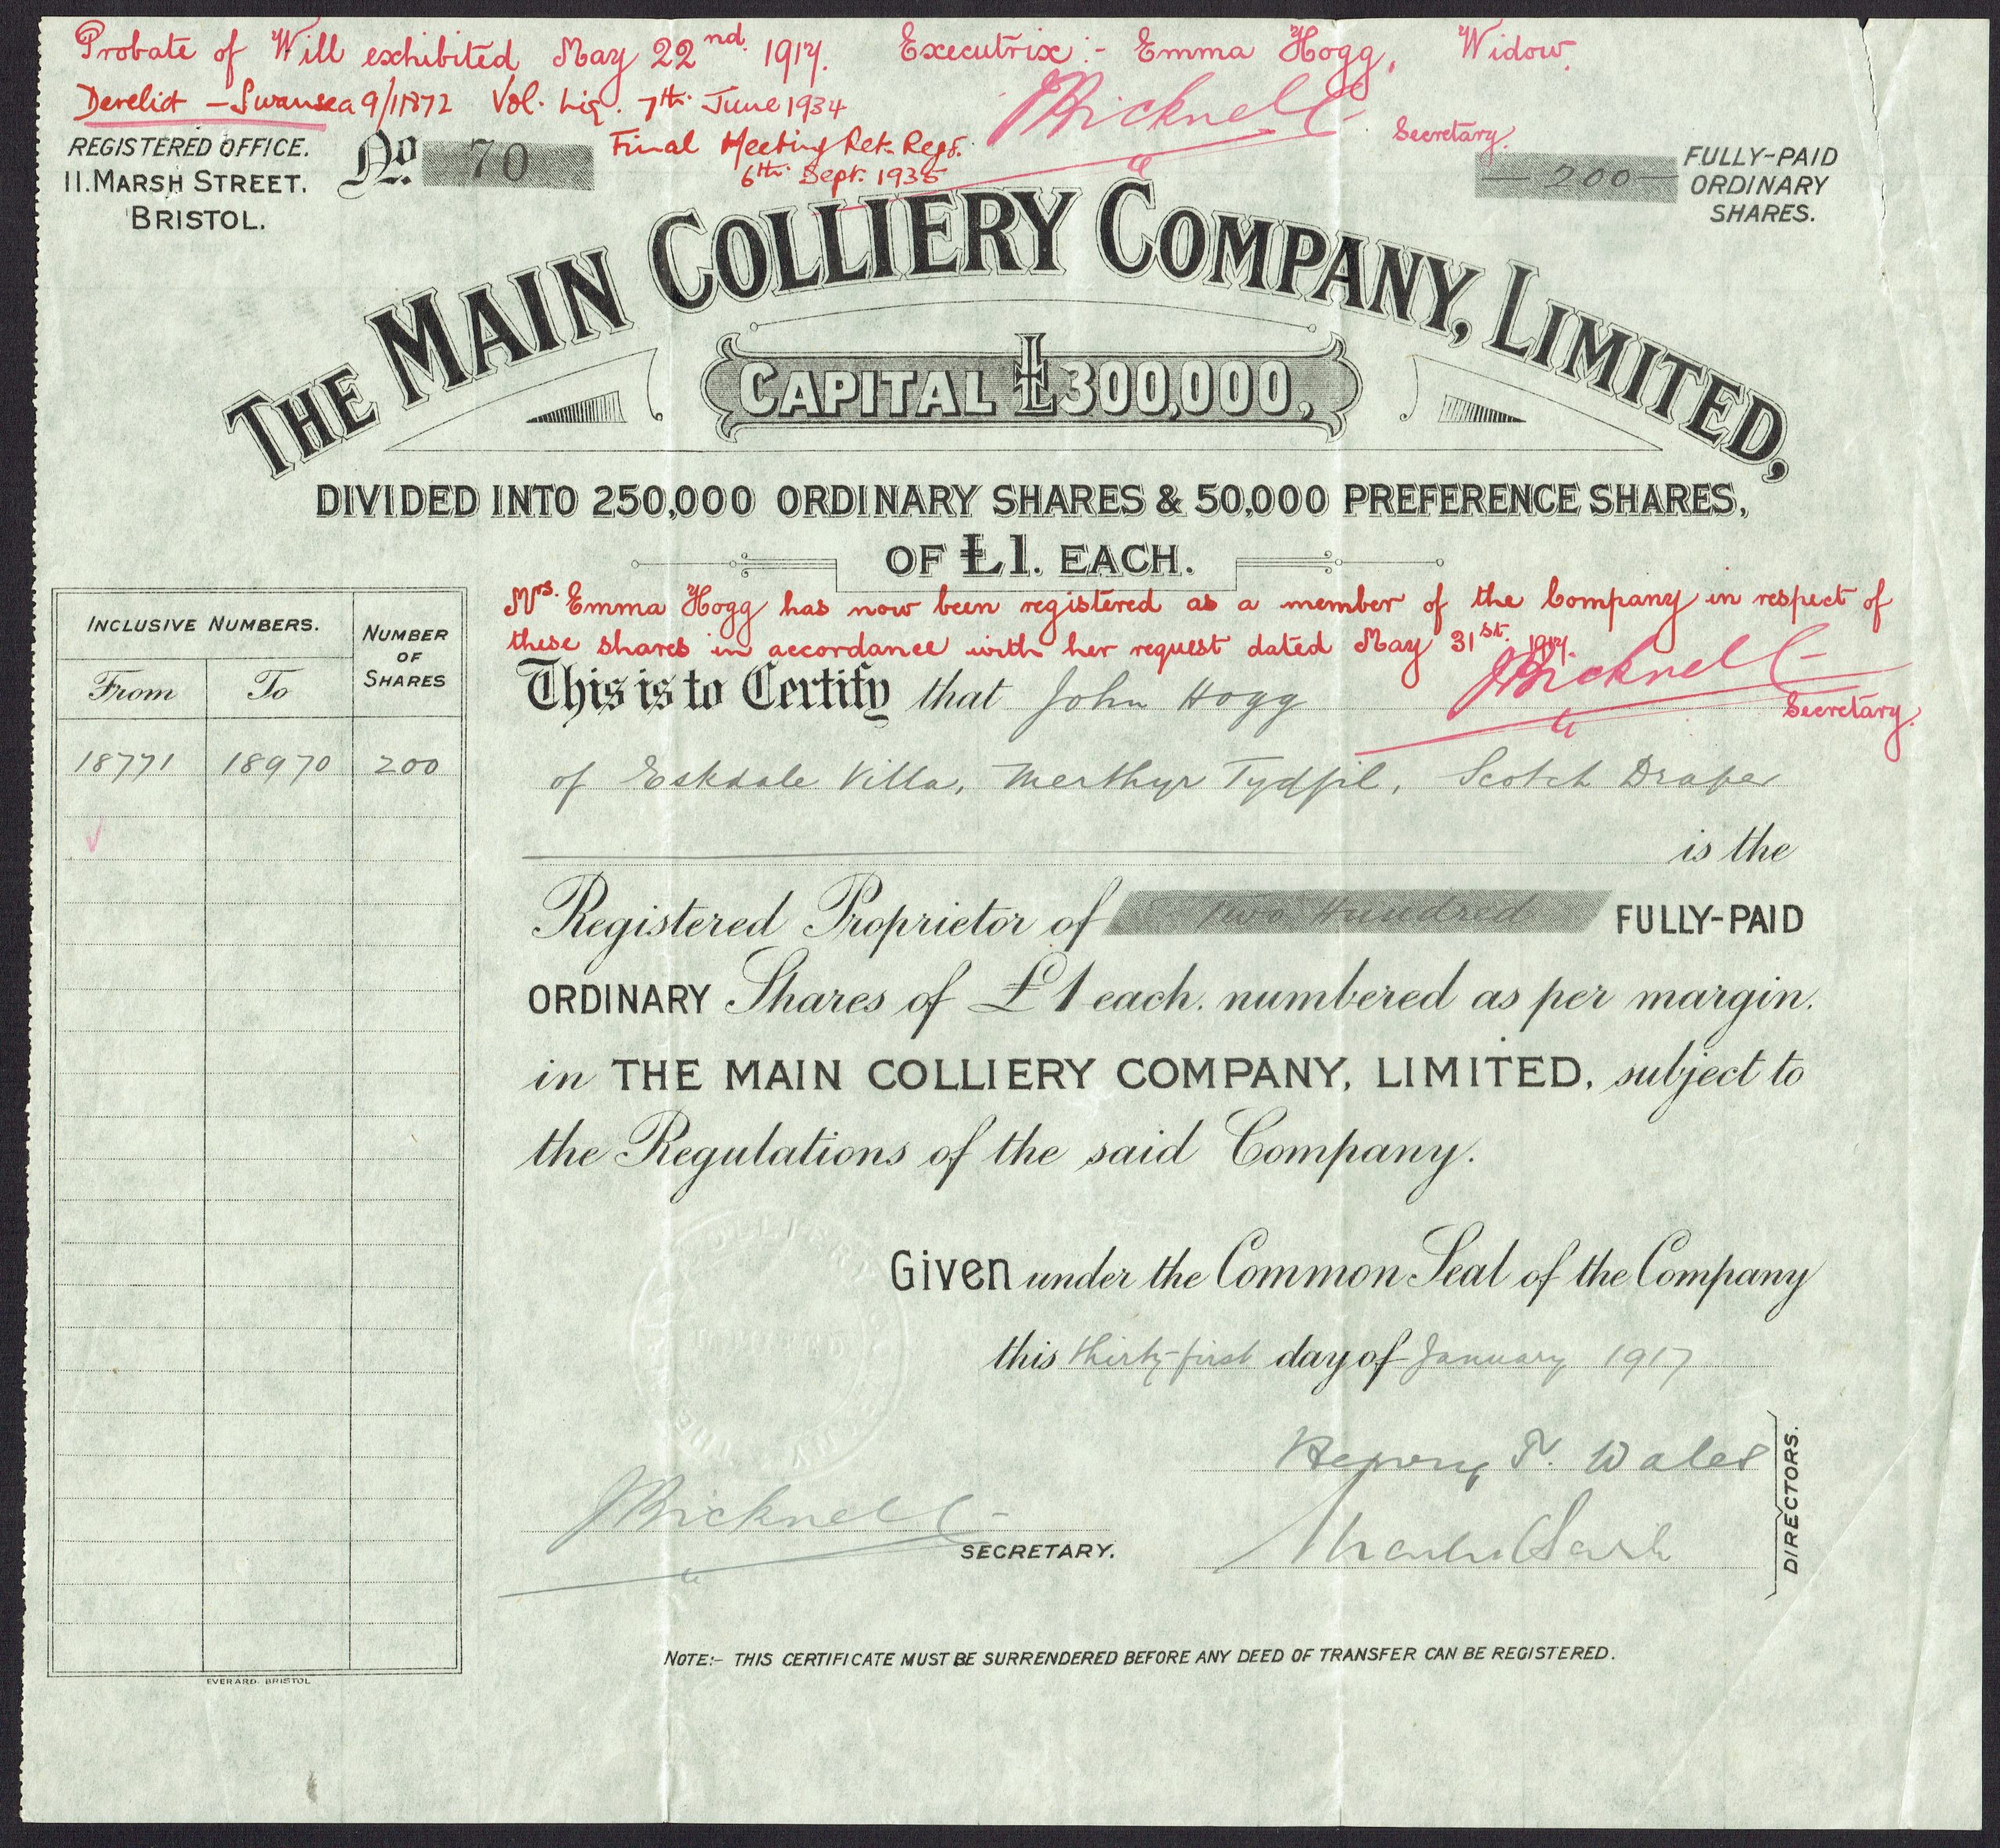 Probate of Will exhibited May 22nd. 1917. Executrix:- Emma Hogg, Widow.
Derelict - Swansea 9/11872 Vol. Liq. 7th. June 1934
JBicknell Secretary.
Final Meeting Ret. Regr.
6th. Sept. 1935
REGISTERED OFFICE.
11. MARSH STREET.
BRISTOL.
No. 70
-200- FULLY-PAID
ORDINARY
SHARES.
THE MAIN COLLIERY COMPANY, LIMITED,
CAPITAL £300,000,
DIVIDED INTO 250,000 ORDINARY SHARES & 50,000 PREFERENCE SHARES,
OF £1. EACH.
Mrs. Emma Hogg has now been registered as a member of the Company in respect of
these shares in accordance with her request dated May 31st. 1917.
JBicknell
Secretary.
INCLUSIVE NUMBERS. NUMBER OF SHARES
From To
18771 18970 200
This is to Certify that John Hogg
of Eskdale Villa, Merthyr Tydfil, Scotch Draper
is the
Registered Proprietor of Two Hundred FULLY-PAID
ORDINARY Shares of £1 each. numbered as per margin.
in THE MAIN COLLIERY COMPANY, LIMITED, subject to
the Regulations of the said Company.
Given under the Common Seal of the Company
this thirty-first day of January 1917
Henry T. Wales
JBicknell
SECRETARY.
DIRECTORS.
NOTE:- THIS CERTIFICATE MUST BE SURRENDERED BEFORE ANY DEED OF TRANSFER CAN BE REGISTERED.
EVERARD. BRISTOL